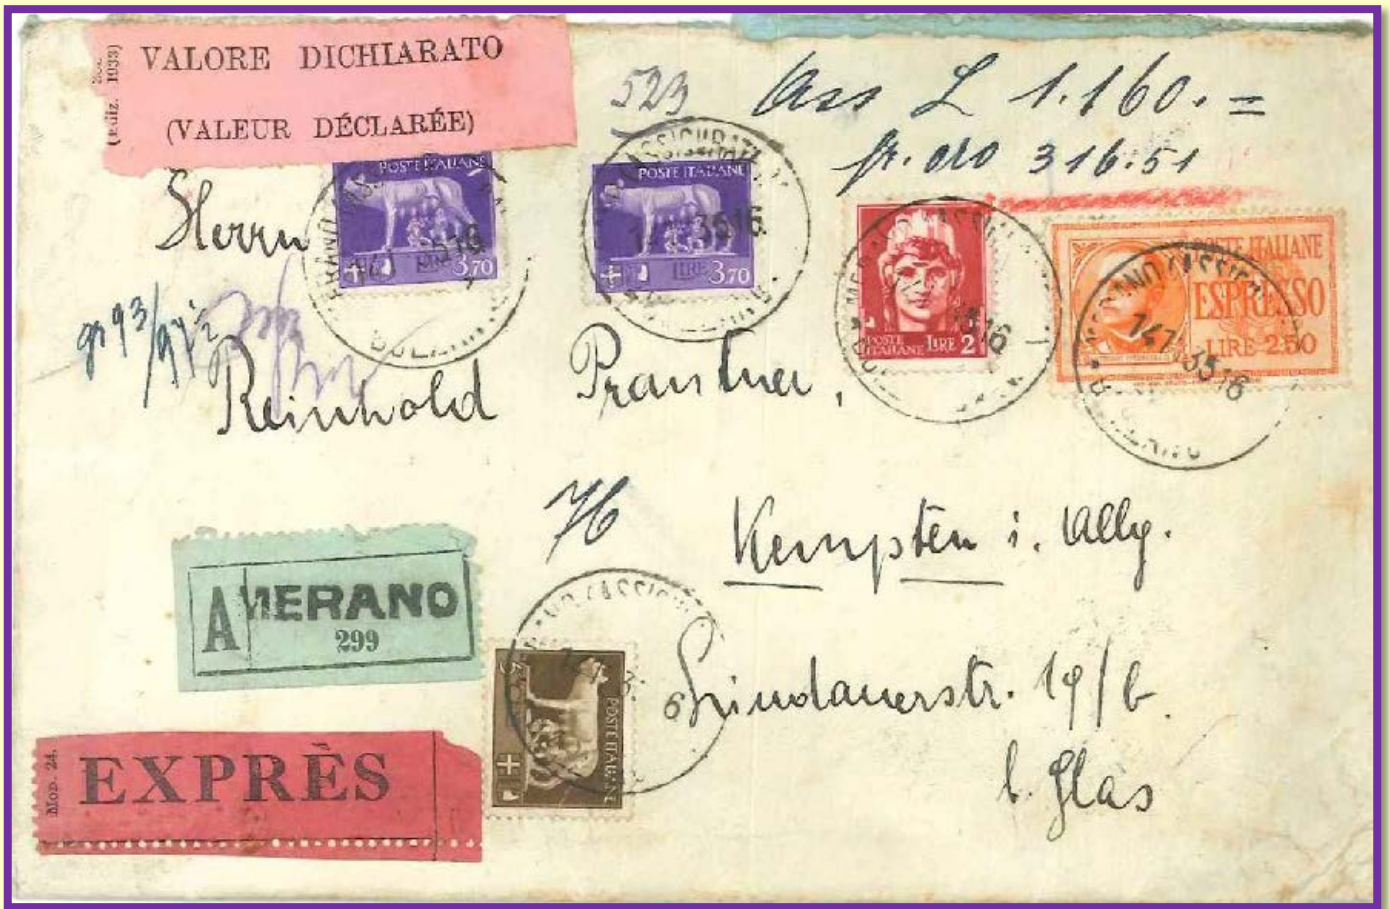 (Ediz. 1933)
VALORE DICHIARATO
(VALEUR DÉCLARÉE)
523
Ass L 1.160.=
fr. oro 316.51
POSTE ITALIANE
3.70
POSTE ITALIANE
LIRE 3.70
POSTE ITALIANE LIRE 2
POSTE ITALIANE
ESPRESSO
LIRE 2.50
MERANO (ASSICURATE)
BOLZANO
Herrn
gr 93/
Reinhold Prantner,
76
Kempten i. Allg.
A MERANO
299
5
POSTE ITALIANE
Lindauerstr. 19/b.
b. Glas
Mod. 24.
EXPRÈS